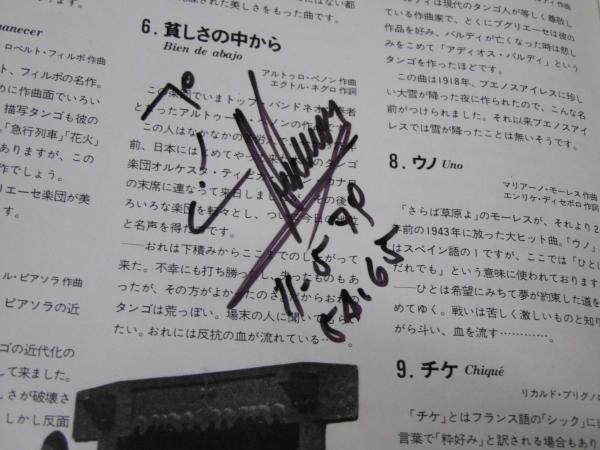 に作られた美しさをもった曲です。
anecer
ロベルト・フィルポ 作曲
ト、フィルポの名作。
めに作曲面でいろい
描写タンゴも彼の
「急行列車」「花火」
ありますが、この
作でしょう。
リエーセ楽団が美
す。
ル・ピアソラ 作曲
ピアソラの近
ゴの近代化の
して来ました。
さが破壊さ
しかし反面
6. 貧しさの中から
Bien de abajo
アルトゥロ・ペノン 作曲
エクトル・ネグロ 作詞
この楽団でいまトップ・バンドネオン奏者
となったアルトゥーロ・ペノンの作
この人はなかなかの苦労人で
前、日本にはじめてやって来た タンゴ
楽団オルケスタ・ティピカ カナロ
の末席に連なって来日しました。その後
ろいろな楽団を転々とし、ついに今日の地位
と名声を得たのです。
――おれは下積みからここまでのし上がって
来た。不幸にも打ち勝った。失ったものもあ
ったが、その方がよかったのさ。だからおれの
タンゴは荒っぽい。場末の人に聞いてもらい
たい。おれには反抗の血が流れている……。
ペノン
11.5.90
バルディは現代のタンゴ人が等しく尊敬し
ている作曲家で、とくにプグリエーセは彼の
作品を好み、バルディが亡くなった時は悲し
みをこめて「アディオス・バルディ」という
タンゴを作ったほどです。
この曲は1918年、ブエノスアイレスに珍し
い大雪が降った夜に作られたので、こんな名
前がつけられました。それ以来ブエノスアイ
レスでは雪が降ったことは無いそうです。
8. ウノ Uno
マリアーノ・モーレス 作曲
エンリケ・ディセポロ 作詞
「さらば草原よ」のモーレスが、それより2
年前の1943年に放った大ヒット曲。「ウノ」
はスペイン語の1ですが、ここでは「ひと
だれでも」という意味に使われております
――ひとは希望にみちて夢が約束した道を
めてゆく。戦いは苦しく激しいものと知り
がら斗い、血を流す…………。
9. チケ Chiqué
リカルド・ブリグノ
「チケ」とはフランス語の「シック」に
言葉で「粋好み」と訳される場合もあり